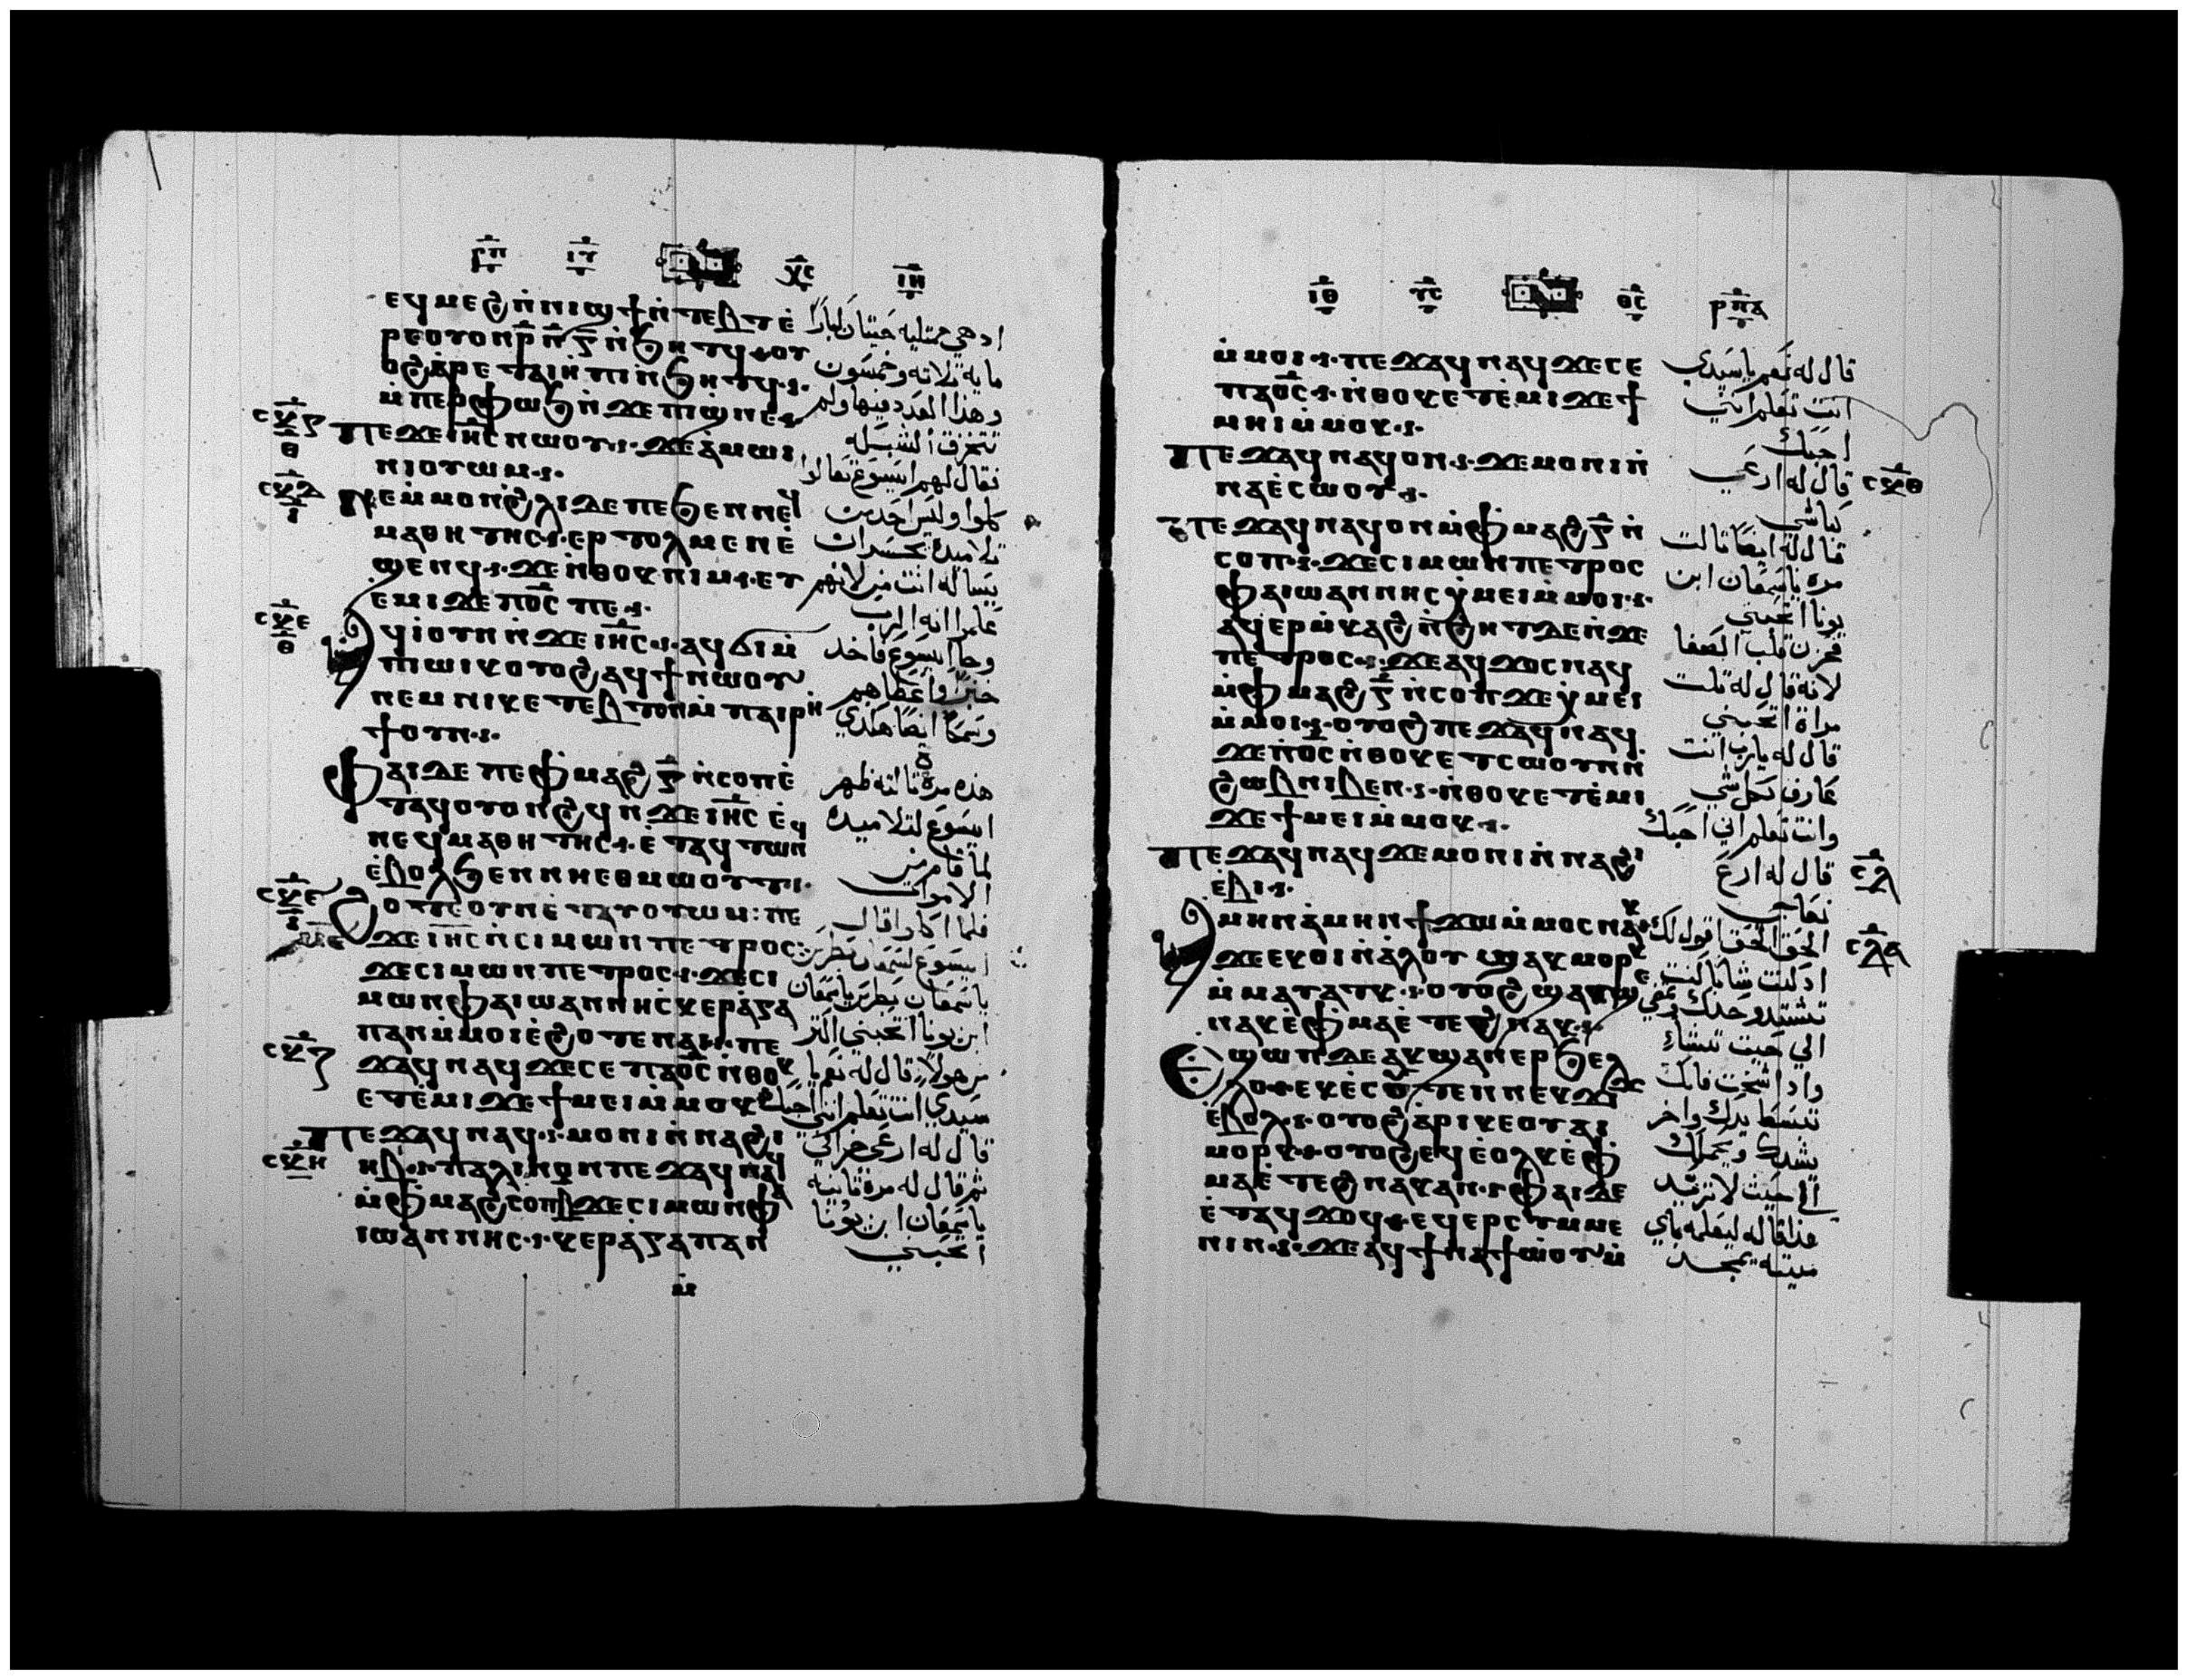 ⲣⲡ ⲓⲏ ⲭⲥ ⲓⲏ
ⲉϥⲙⲉϩ ⲛ̇ⲛⲓϣϯ ⲛ̇ⲧⲉⲃⲧ ⲉ̇
ⲣⲉⲟⲩⲟⲛ ⲣ̅ⲛ̅ⲅ̅ ⲛ̇ϧⲏⲧϥ ⲟⲩ
ⲟϩ ⲁ̇ⲣⲉ ⲧⲁⲓⲏⲡⲓ ⲛ̇ϧⲏⲧϥ
ⲙ̇ⲡⲉϥⲫⲱϧ ⲛ̇ϫⲉ ⲡⲓϣⲛⲉ
ⲡⲉϫⲉ ⲓⲏ̅ⲥ̅ ⲛⲱⲟⲩ ϫⲉ ⲁ̇ⲙⲱⲓ
ⲛⲓⲟⲩⲱⲙ
ⲛⲉ ⲙ̇ⲙⲟⲛ ϩ̇ⲗⲓ ⲇⲉ ⲡⲉ ϧⲉⲛ ⲛⲉϥ
ⲙⲁⲑⲏⲧⲏⲥ ⲉⲣⲧⲟⲗⲙⲉⲛ ⲉ̇
ϣⲉⲛϥ ϫⲉ ⲛ̇ⲑⲟⲕ ⲛⲓⲙ ⲉⲩ
ⲉⲙⲓ ϫⲉ ⲡⲟ̅ⲥ̅ ⲡⲉ
ⲁϥⲓ̇ ⲟⲩⲛ ⲛ̇ϫⲉ ⲓⲏ̅ⲥ̅ ⲁϥϭⲓ ⲙ̇
ⲡⲱⲓⲕ ⲟⲩⲟϩ ⲁϥϯ ⲛⲱⲟⲩ
ⲛⲉⲙ ⲛⲓⲕⲉⲧⲉⲃⲧ ⲟⲛ ⲙ̇ⲡⲁⲓⲣⲏ
ϯ ⲟⲛ
ⲫⲁⲓ ⲇⲉ ⲡⲉ ⲫⲙⲁϩ ⲅ̅ ⲛ̇ⲥⲟⲡ ⲉ̇
ⲧⲁϥⲟⲩⲟⲛϩϥ ⲛ̇ϫⲉ ⲓⲏ̅ⲥ̅ ⲉ̇
ⲛⲉϥⲙⲁⲑⲏⲧⲏⲥ ⲉ̇ⲧⲁϥⲧⲱⲛϥ
ⲉ̇ⲃⲟⲗ ϧⲉⲛ ⲛⲏⲉⲑⲙⲱⲟⲩⲧ
ϩⲟⲧⲉ ⲟⲩⲛ ⲉ̇ⲧⲁⲩⲟⲩⲱⲙ ⲡⲉ
ϫⲉ ⲓⲏ̅ⲥ̅ ⲛ̇ⲥⲓⲙⲱⲛ ⲡⲉⲧⲣⲟⲥ
ϫⲉ ⲥⲓⲙⲱⲛ ⲡⲉⲧⲣⲟⲥ ϫⲉ ⲥⲓ
ⲙⲱⲛ ⲫⲁ ⲓⲱⲁⲛⲛⲏⲥ ⲕⲉⲣⲁ̇ⲅⲁ
ⲡⲁⲛ ⲙ̇ⲙⲟⲓ ⲉ̇ϩⲟⲧⲉ ⲛⲁⲓ ⲡⲉ
ϫⲁϥ ⲛⲁϥ ϫⲉ ⲥⲉ ⲡⲁⲟ̅ⲥ̅ ⲛ̇ⲑⲟⲕ
ⲉⲧⲉ̇ⲙⲓ ϫⲉ ϯⲙⲉⲓ ⲙ̇ⲙⲟⲕ
ⲡⲉϫⲁϥ ⲛⲁϥ ⲙⲟⲛⲓ ⲛ̇ⲛⲁϩⲓ
ⲏⲃ ⲡⲁⲗⲓⲛ ⲟⲛ ⲡⲉϫⲁϥ ⲛⲁϥ
ⲙ̇ⲫⲙⲁϩ ⲥⲟⲡ ⲃ̅ ϫⲉ ⲥⲓⲙⲱⲛ ⲫⲁ
ⲓⲱⲁⲛⲛⲏⲥ ⲕⲉⲣⲁ̇ⲅⲁⲡⲁⲛ
ⲙ̇
اد هي ممتليه حيتان كبارا
مايه ثلاثه وخمسون
وهذا العدد فيها ولم
تتخرق الشبكه
فقال لهم ايسوع تعالوا
كلوا وليس احد من
تلاميده يجسر ان
يساله انت من لانهم
علموا انه الرب
وجا ايسوع فاخد
خبزا واعطاهم
وسمكا ايضا هكدي
هذه مرة ثالثه ظهر
ايسوع لتلاميده
لما قام من
الاموات
فلما اكلوا قال
ايسوع لسمعان بطرس
يا سمعان بطرس يا سمعان
ابن يونا اتحبني اكثر
من هولاء قال له نعم يا
سيدي انت تعلم انني احبك
قال له ارعى خرافي
ثم قال له مرة ثانية
يا سمعان ابن يونا
اتحبني
ⲓⲑ ⲭⲥ ⲑⲥ ⲣⲡⲁ
ⲙ̇ⲙⲟⲓ ⲡⲉϫⲁϥ ⲛⲁϥ ϫⲉ ⲥⲉ
ⲡⲁⲟ̅ⲥ̅ ⲛ̇ⲑⲟⲕ ⲉⲧⲉ̇ⲙⲓ ϫⲉ ϯ
ⲙⲏⲓ ⲙ̇ⲙⲟⲕ
ⲡⲉϫⲁϥ ⲛⲁϥ ⲟⲛ ϫⲉ ⲙⲟⲛⲓ ⲛ̇
ⲛⲁⲉ̇ⲥⲱⲟⲩ
ⲡⲉϫⲁϥ ⲛⲁϥ ⲟⲛ ⲙ̇ⲫⲙⲁϩ ⲅ̅ ⲛ̇
ⲥⲟⲡ ϫⲉ ⲥⲓⲙⲱⲛ ⲡⲉⲧⲣⲟⲥ
ⲫⲁ ⲓⲱⲁⲛⲛⲏⲥ ⲭⲙⲉⲓ ⲙ̇ⲙⲟⲓ
ⲁϥⲉⲣⲙ̇ⲕⲁϩ ⲛ̇ϩⲏⲧ ⲇⲉ ⲛ̇ϫⲉ
ⲡⲉⲧⲣⲟⲥ ϫⲉ ⲁϥϫⲟⲥ ⲛⲁϥ
ⲙ̇ⲫⲙⲁϩ ⲅ̅ ⲛ̇ⲥⲟⲡ ϫⲉ ⲭⲙⲉⲓ
ⲙ̇ⲙⲟⲓ ⲟⲩⲟϩ ⲡⲉϫⲁϥ ⲛⲁϥ
ϫⲉ ⲡⲟ̅ⲥ̅ ⲛ̇ⲑⲟⲕ ⲉⲧⲥⲱⲟⲩⲛ ⲛ̇
ϩⲱⲃ ⲛⲓⲃⲉⲛ ⲛ̇ⲑⲟⲕ ⲉⲧⲉ̇ⲙⲓ
ϫⲉ ϯⲙⲉⲓ ⲙ̇ⲙⲟⲕ
ⲡⲉϫⲁϥ ⲛⲁϥ ϫⲉ ⲙⲟⲛⲓ ⲛ̇ⲛⲁϩⲓ
ⲉ̇ⲃⲓ
ⲁⲙⲏⲛ ⲁ̇ⲙⲏⲛ ϯϫⲱ ⲙ̇ⲙⲟⲥ ⲛⲁⲕ
ϫⲉ ⲉⲕⲟⲓ ⲛ̇ⲁ̇ⲗⲟⲩ ϣⲁⲕⲙⲟⲣⲕ
ⲙ̇ⲙⲁⲩⲁⲧⲕ ⲟⲩⲟϩ ϣⲁⲕϣⲉ
ⲛⲁⲕ ⲉ̇ⲫⲙⲁ ⲉ̇ⲧⲉϩⲛⲁⲕ
ⲉϣⲱⲡ ⲇⲉ ⲁⲕϣⲁⲛⲉⲣϧⲉⲗ
ⲗⲟ ⲉⲕⲉ̇ⲥⲟⲩⲧⲉⲛ ⲛⲉⲕϫⲓϫ
ⲉ̇ⲃⲟⲗ ⲟⲩⲟϩ ⲁ̇ⲣⲓ ⲕⲉⲟⲩⲁⲓ
ⲙⲟⲣⲕ ⲟⲩⲟϩ ⲉϥⲉ̇ⲟⲗⲕ ⲉ̇ⲫ
ⲙⲁ ⲉ̇ⲧⲉϩⲛⲁⲕ ⲁⲛ ⲫⲁⲓ ⲇⲉ
ⲉ̇ⲧⲁϥϫⲟϥ ⲉϥⲉⲣⲥⲩⲙⲙⲉ
ⲛⲓⲛ ϫⲉ ⲁϥϯⲛⲁϯⲱ̇ⲟⲩ ⲙ̇
قال له نعم يا سيدي
انت تعلم انني
احبك
قال له ارعى
كباشي
قال له ايضا ثالث
مره يا سمعان ابن
يونا اتحبني
فحزن قلب الصفا
لانه قال له ثلث
مراة اتحبني
قال له يارب انت
عارف بكل شي
وانت تعلم اني احبك
قال له ارع
نعاجي
الحق الحق اقول لك
اد كنت شابا كنت
تشتد وحدك وتمضي
الي حيث تشاء
واذا شخت فانك
تبسط يدك واخر
يشدك ويحملك
الي حيث لا تريد
هذا قاله ليعلمه باي
ميته يمجد
ⲥⲕⲅ
ⲑ
ⲥⲕⲇ
ⲓ
ⲥⲕⲉ
ⲑ
ⲥⲕⲍ
ⲥⲕⲏ
ⲥⲕⲑ
ⲥⲗ
ⲥⲗⲁ